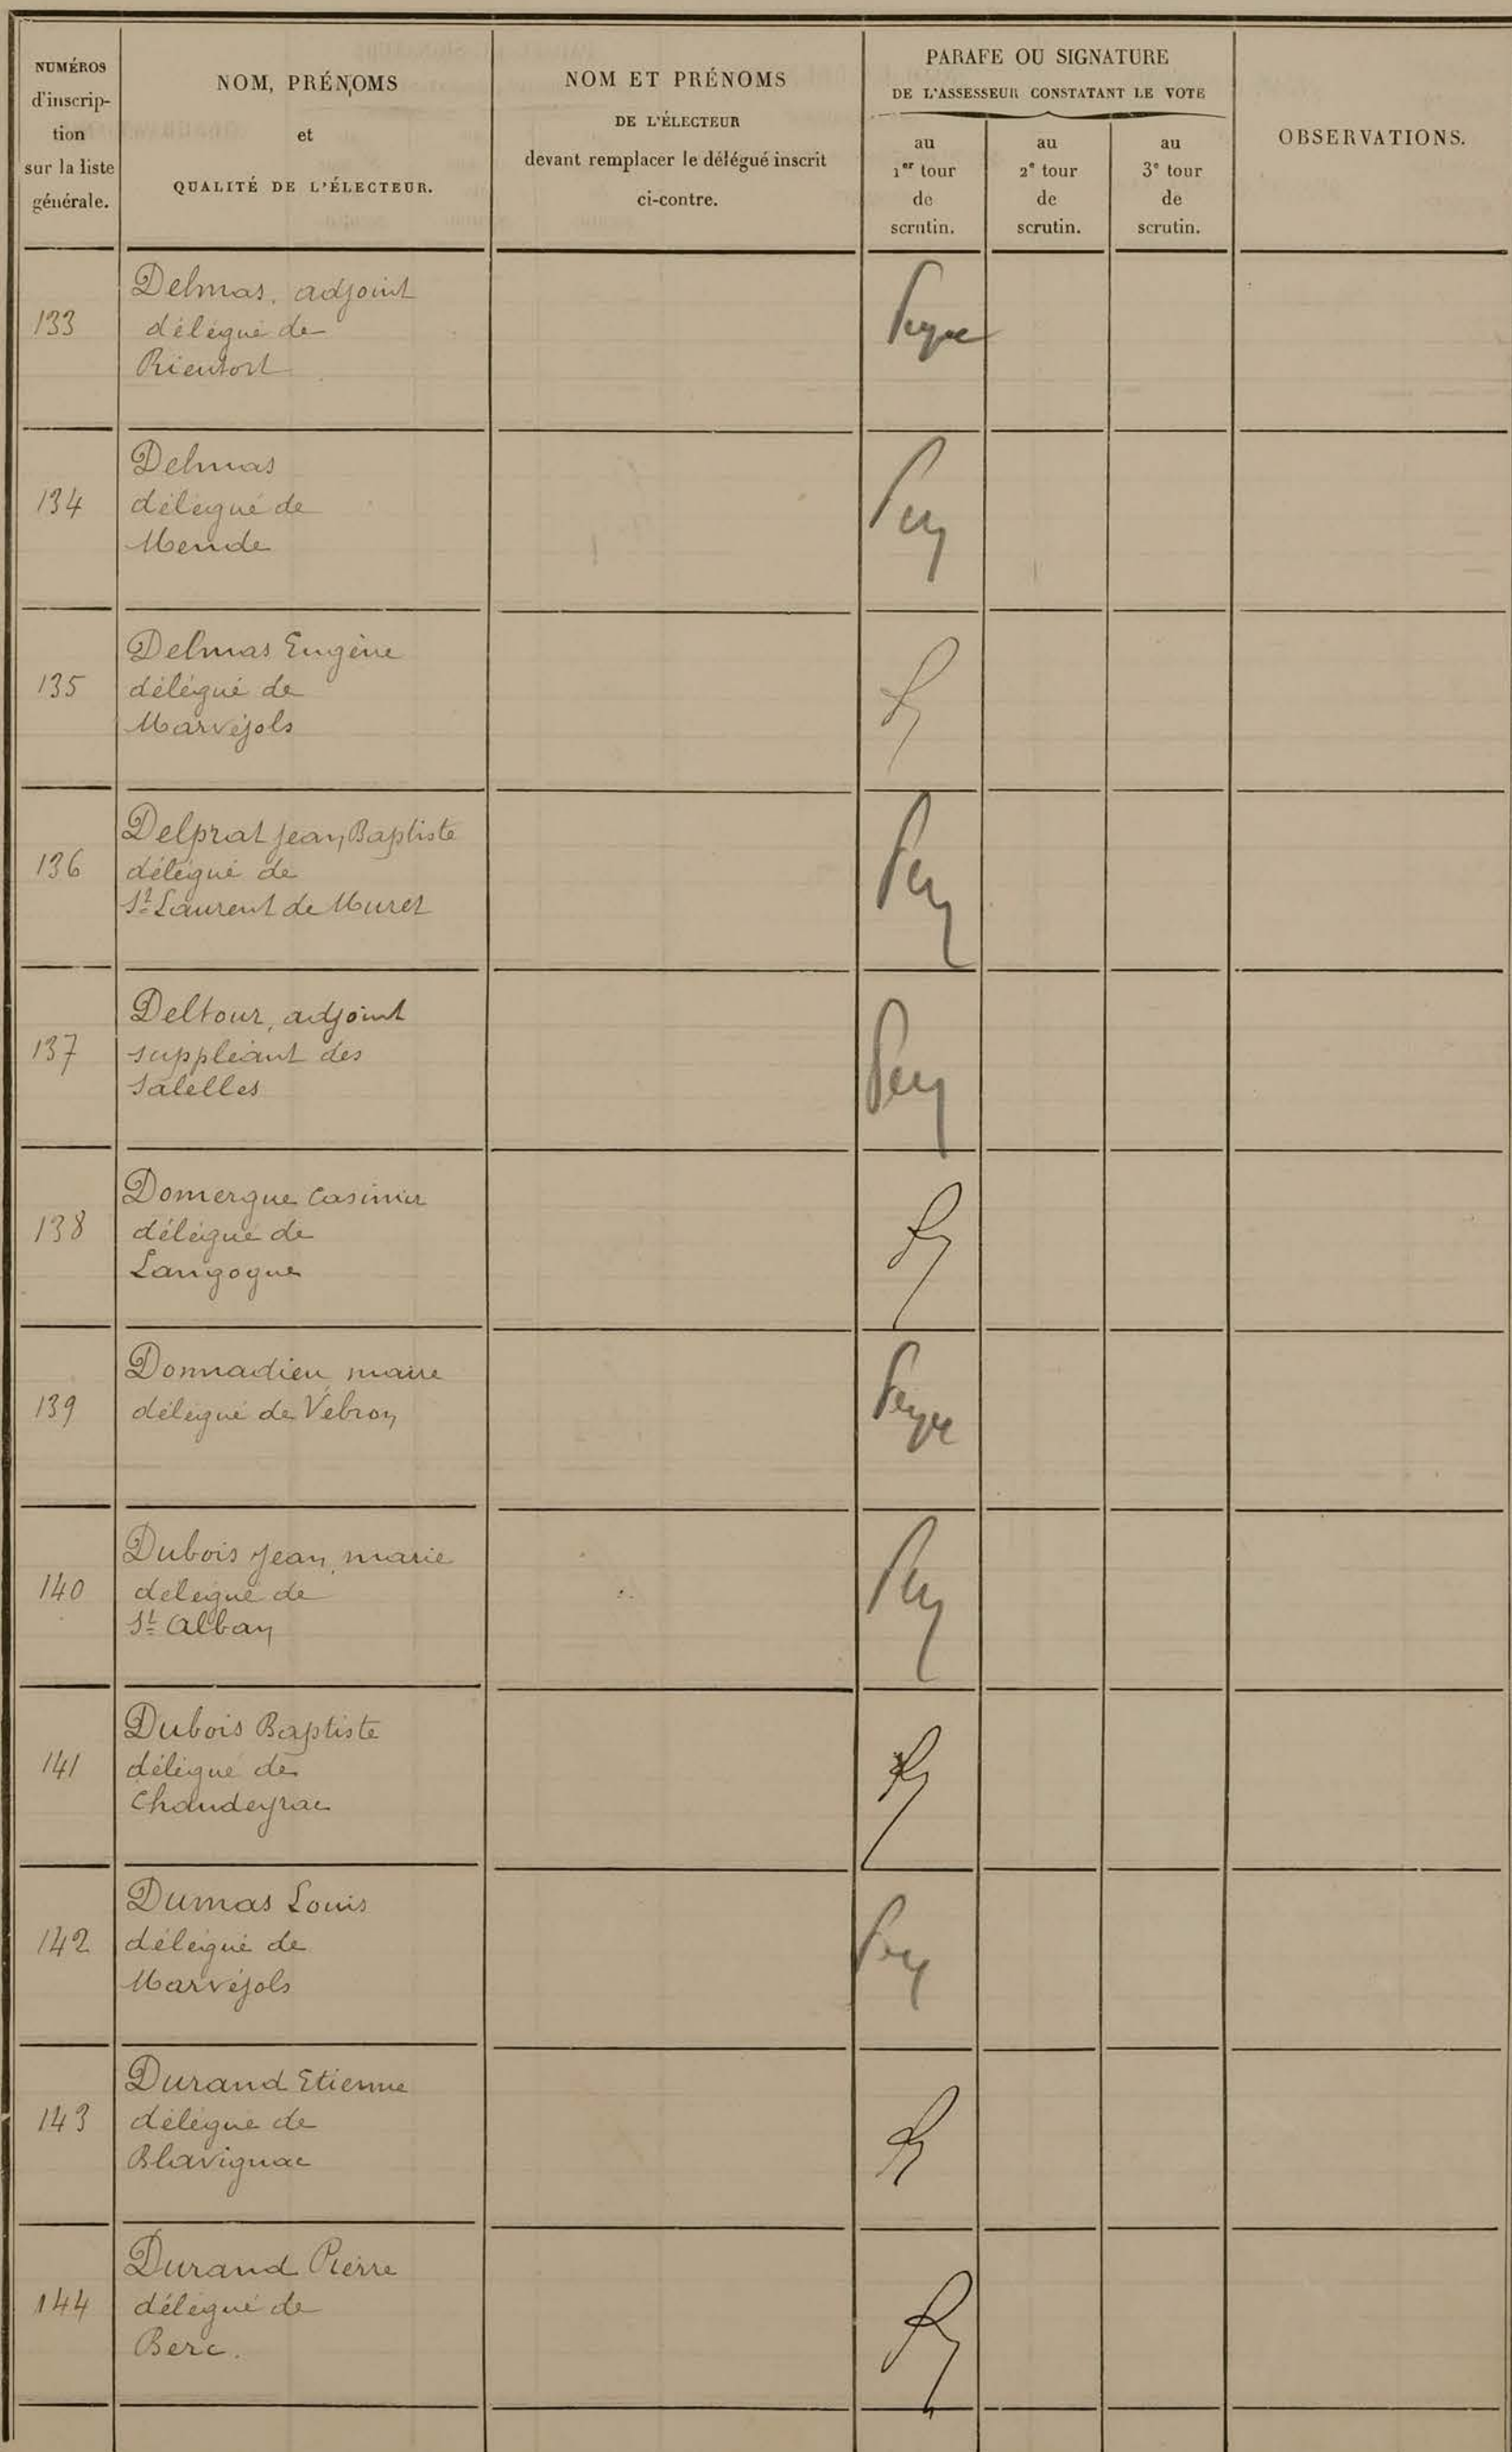 NUMÉROS
d'inscrip-
tion
sur la liste
générale.
NOM, PRÉNOMS
et
QUALITÉ DE L'ÉLECTEUR.
NOM ET PRÉNOMS
DE L'ÉLECTEUR
devant remplacer le délégué inscrit
ci-contre.
PARAFE OU SIGNATURE
DE L'ASSESSEUR CONSTATANT LE VOTE
au
1er tour
de
scrutin.
au
2e tour
de
scrutin.
au
3e tour
de
scrutin.
OBSERVATIONS.
133
Delmas, adjoint
délégué de
Rieutort
134
Delmas
délégué de
Mende
135
Delmas Eugène
délégué de
Marvéjols
136
Delprat Jean Baptiste
délégué de
St Laurent de Muret
137
Deltour, adjoint
suppléant des
Salelles
138
Domergue Casimir
délégué de
Langogne
139
Donnadieu, maire
délégué de Vébron
140
Dubois Jean, marie
délégué de
St Alban
141
Dubois Baptiste
délégué de
Chaudeyrac
142
Dumas Louis
délégué de
Marvéjols
143
Durand Etienne
délégué de
Blavignac
144
Durand Pierre
délégué de
Berc.